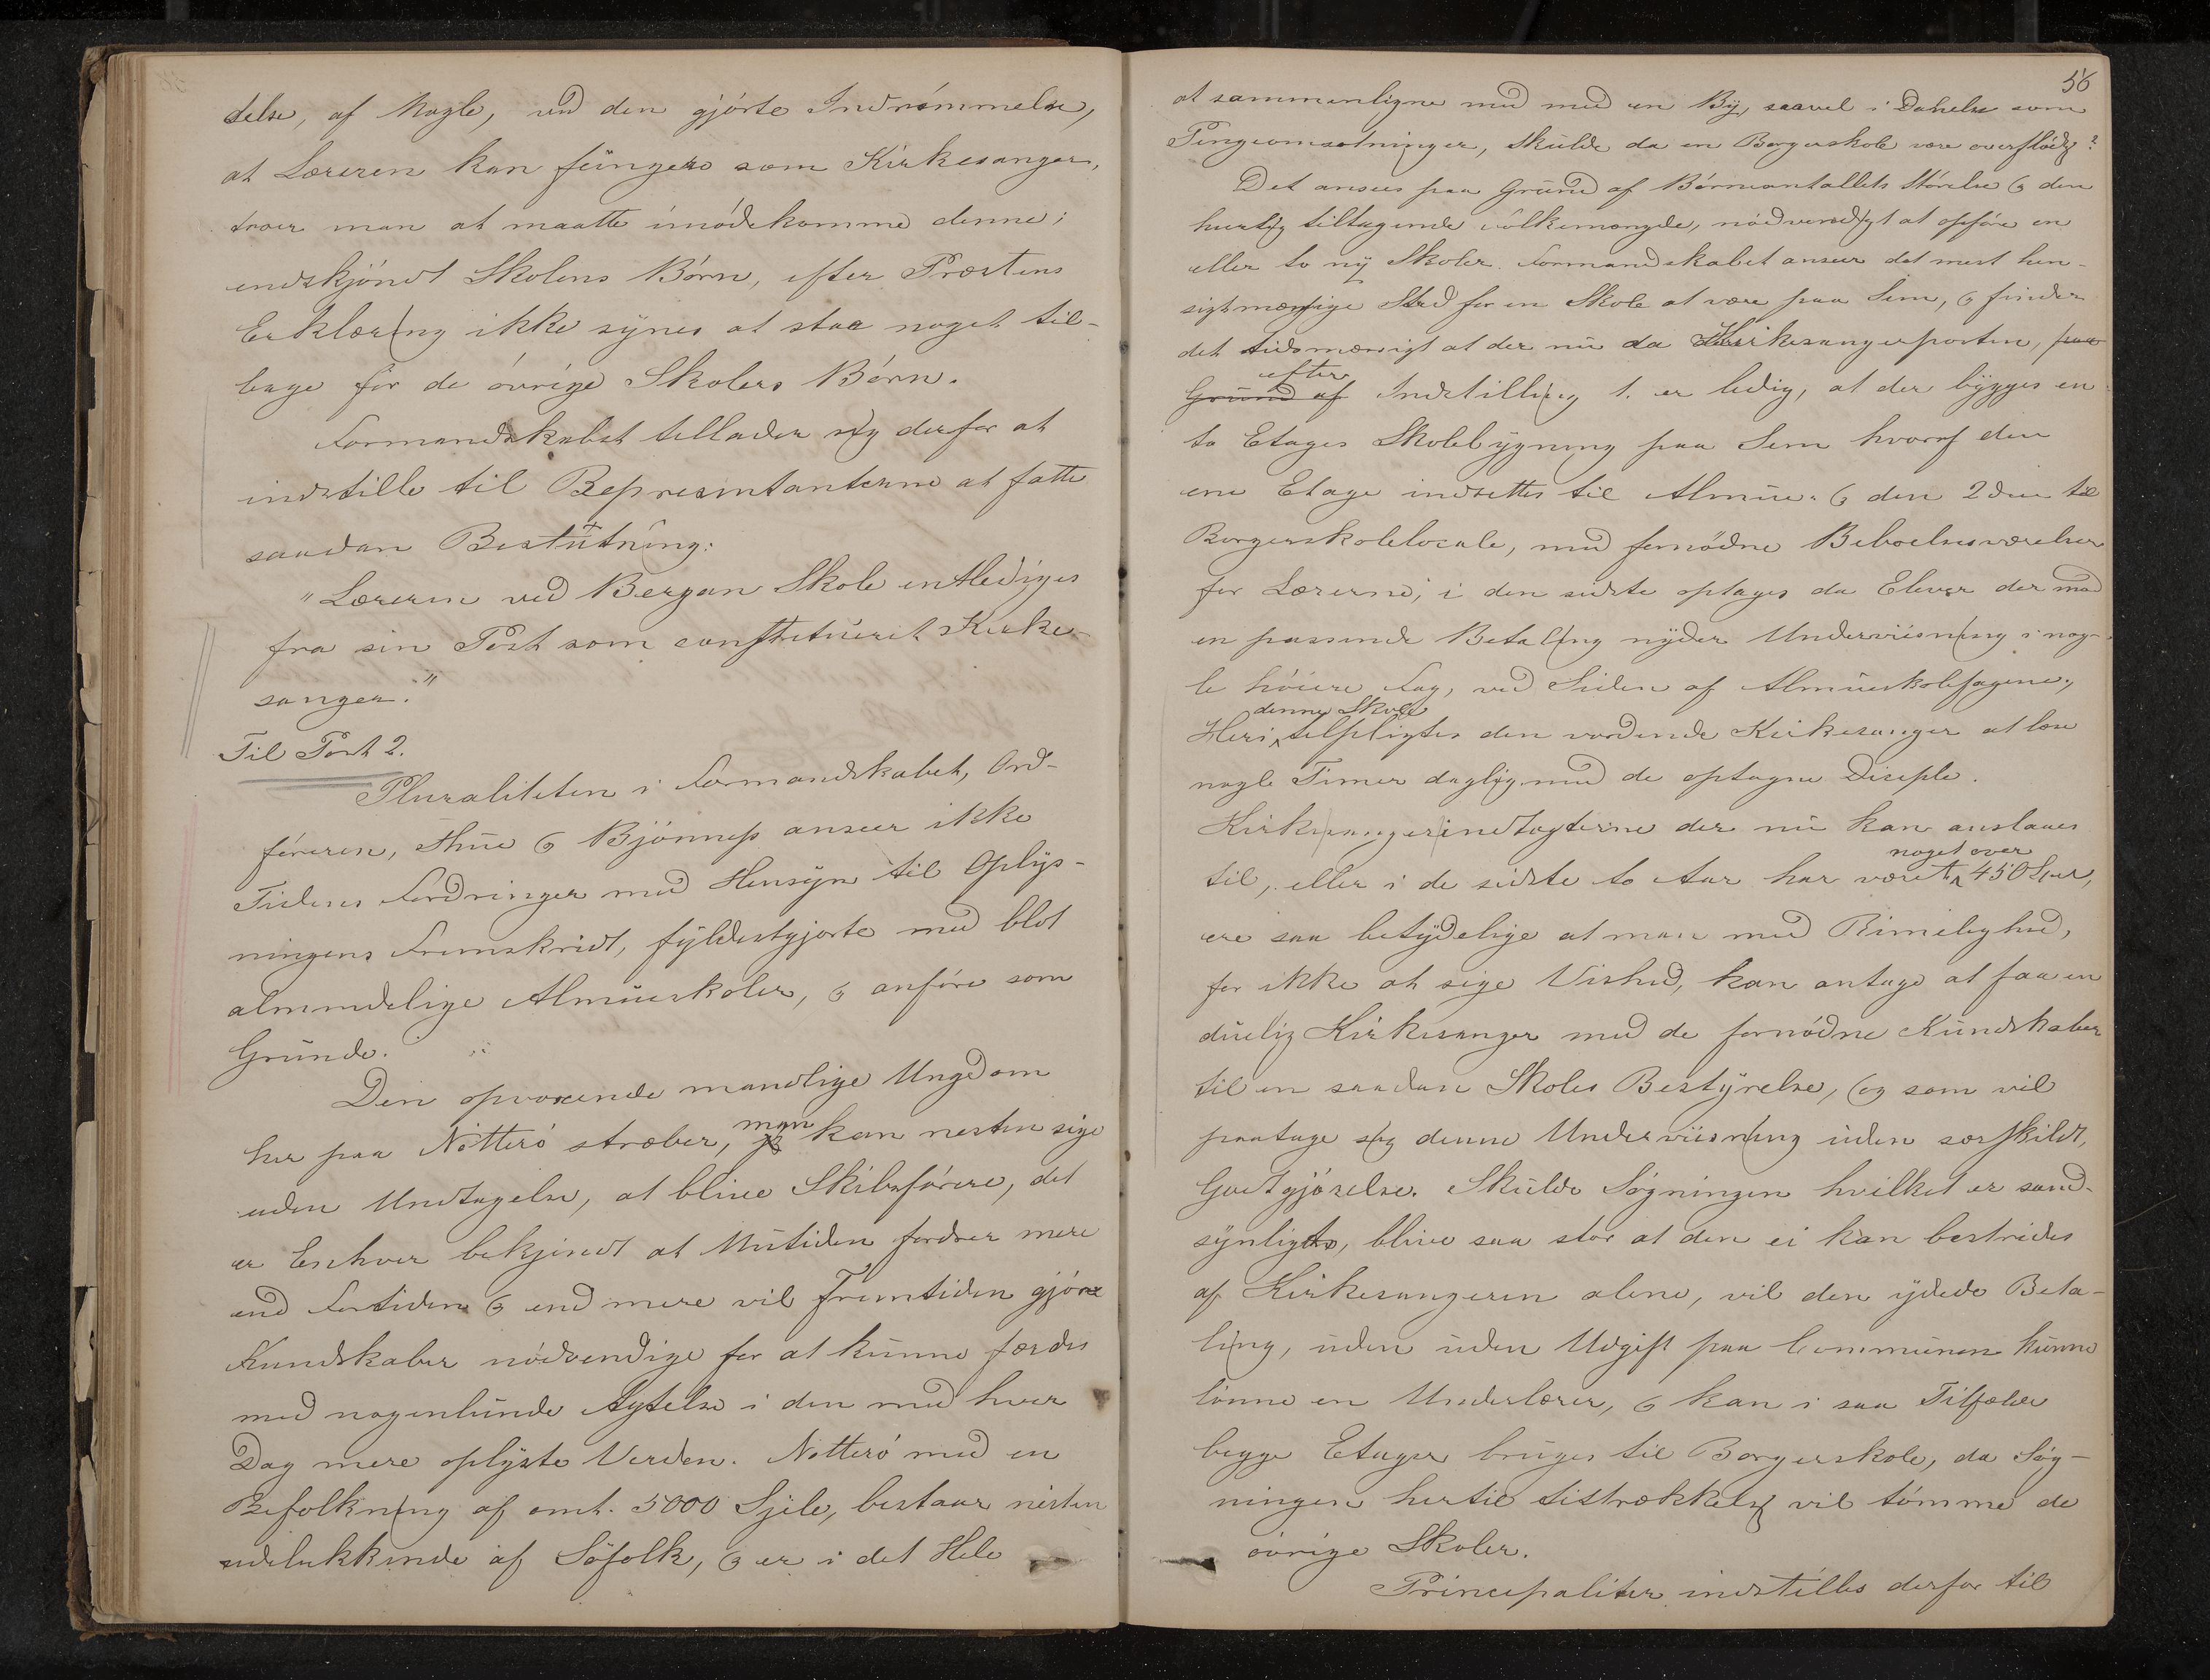 delse, af Nogle, ved den gjörte Indrömmelse,
at Læreren kan fungere som Kirkesanger,
troer man at maatte imödekomme denne;
endskjöndt Skolens Börn, efter Præstens
Erklæring ikke synes at staa noget til-
bage for de övrige Skolers Börn.
Formandskabet tillader sig derfor at
indstille til Repræsentanterne at fatte
saadan Beslutning:
"Læreren ved Bergan Skole entlediges
fra sin Post som constitueret Kirke-
sanger."
Til Post 2.
Pluraliteten i Formandskabet, Ord-
föreren, Thue og Bjönness anseer ikke
Tidens Fordringer med Hensyn til Oplys-
ningens Fremskridt, fyldestgjorte med blot
almindelige Almueskoler, og anföre som
Grunde.
Den opvoxende mandlige Ungdom
her paa Nötterö stræber, man kan nesten sige
uden Undtagelse, at blive Skibsförere, det
er Enhver bekjendt at Nutiden fordrer mere
end Fortiden og end mere vil Fremtiden gjöre
Kundskaber nödvendige for at kunne færdes
med nogenlunde Agtelse i den med hver
Dag mere oplyste Verden. Nötterö med en
Befolkning af omt. 5000 Sjele, bestaar nesten
udelukkende af Söfolk, og er i det Hele
56
at sammenligne med med en By, saavel i Dahelse som
Pengeomsetninger, skulde da en Borgerskole være overflödig?
Det ansees paa Grund af Börneantallets Störelse og den
hurtig tiltagende Folkemengde, nödvendigt at opföre en
eller to ny Skoler. Formandskabet anseer det mest hen-
sigtmæssige Sted for en Skole at være paa Sem, og finder
det tidsmæssigt at der nu da Kirkesangerposten, paa
efter
Grund af Indstilling 1. er ledig, at der bygges en
to Etages Skolebygning paa Sem hvoraf den
ene Etage indsettes til Almue- og den 2den til
Borgerskolelocale, med fornödne Beboelsesværelser
for Lærerne; i den sidste optages da Elever der mod
en passende Betaling nyder Underviisning i nog-
le höiere Fag, ved Siden af Almueskolefagene,
denne Skole
Heri tilpligtes den vordende Kirkesanger at læse
nogle Timer daglig med de optagne Disciple.
Kirkesangerindtægterne der nu kan anslaaes
noget over
til, eller i de sidste to Aar har været 450 Spd,
ere saa betydelige at man med Rimelighed,
for ikke at sige Vished, kan antage at faa en
duelig Kirkesanger med de fornödne Kundskaber
til en saadan Skoles Bestyrelse, og som vil
paatage sig denne Underviisning uden særskildt,
Godtgjörelse. Skulde Sögningen hvilket er sand-
synligt, blive saa stor at den ei kan bestrides
af Kirkesangeren alene, vil den ydede Beta-
ling, uden uden Udgift paa Communen kunne
lönne en Underlærer, og kan i saa Tilfælde
begge Etager bruges til Borgerskole, da Sög-
ningen hertil tilstrækkelig vil tömme de
övrige Skoler.
Principaliter indstilles derfor til